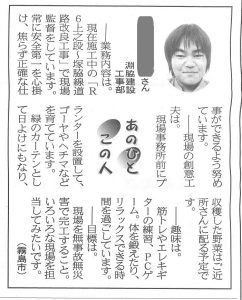 さん
淵脇建設
工事部
あのひと
このひと
――業務内容は。
現在施工中の「R
6上之段～塚脇線道
路改良工事」で現場
監督をしています。
常に安全第一を心掛
け、焦らず正確な仕
事ができるよう努め
ています。
――現場の創意工
夫は。
現場事務所前にプ
ランターを設置して、
ゴーヤやヘチマなど
を育てています。
緑のカーテンとし
て日よけにもなり、
収穫した野菜はご近
所さんに配る予定で
す。
――趣味は。
筋トレやエレキギ
ターの練習、PCゲ
ーム。体を鍛えたり、
リラックスできる時
間を過ごしています。
――目標は。
現場を無事故無災
害で完工すること。
いろいろな現場を担
当してみたいです。
（霧島市）